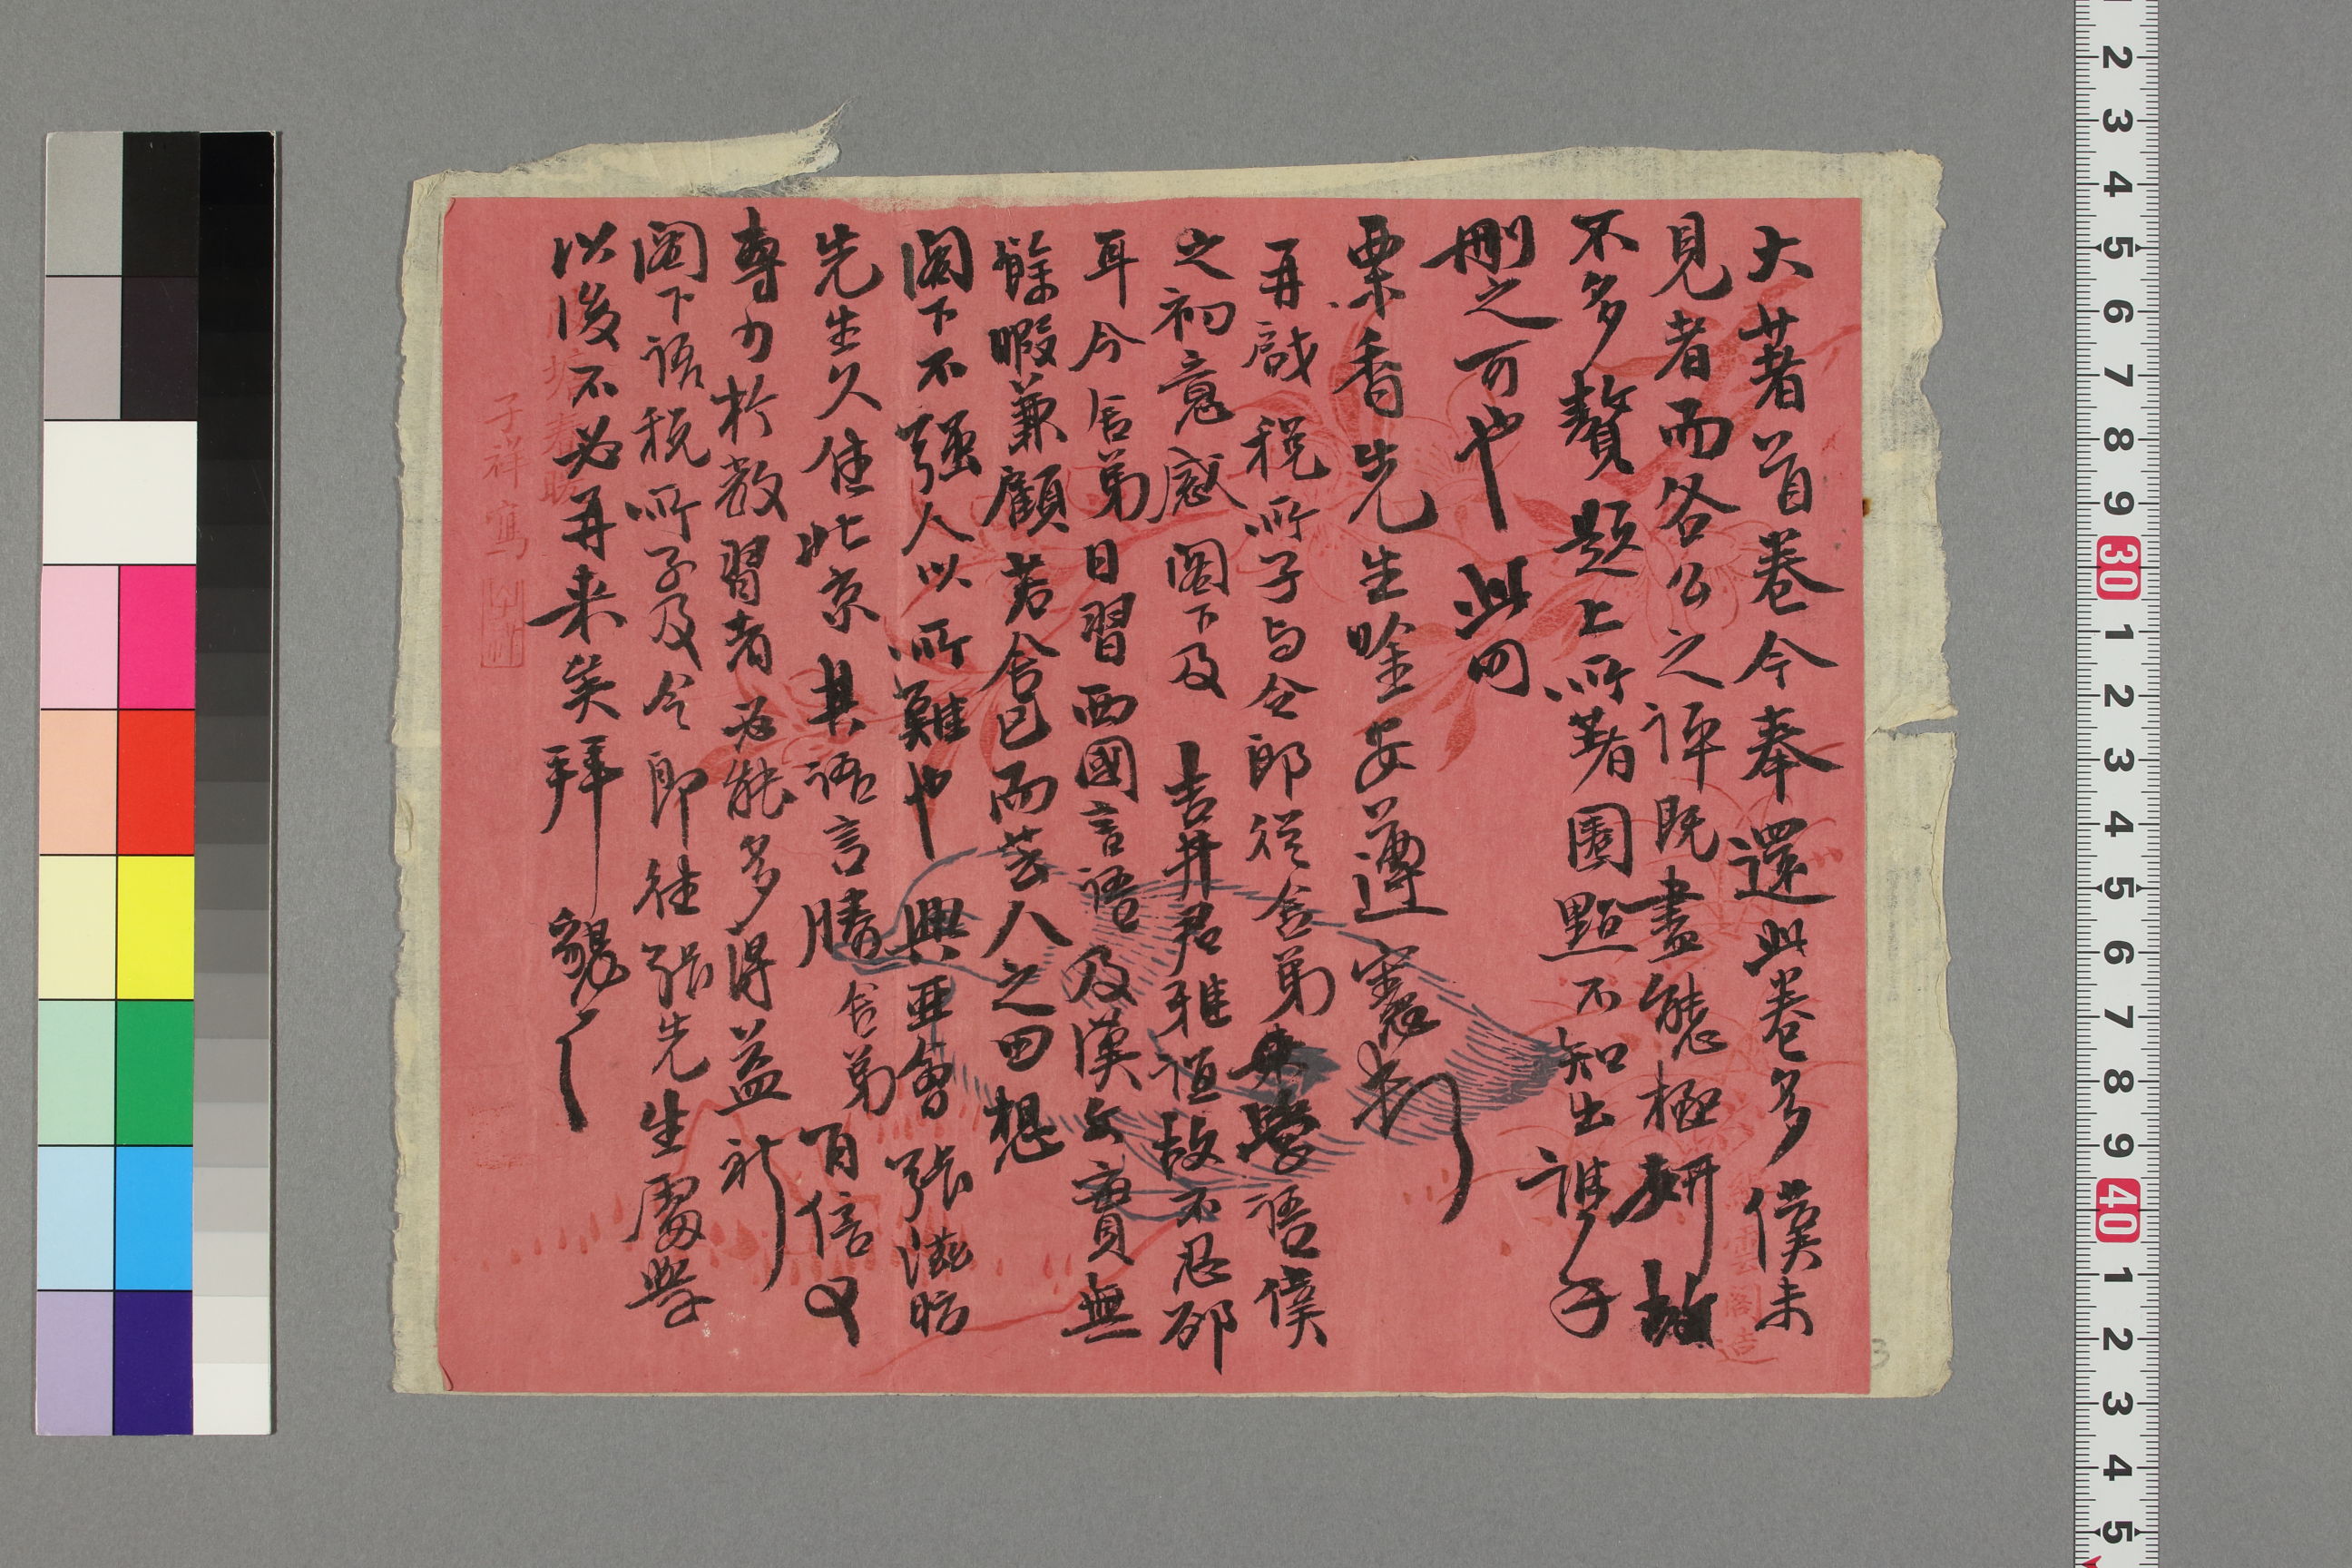 大著首卷今奉還此卷多僕未
見者而各公之評既盡態極妍故
不多贅題上所著圈點不知出誰手
刪之可也此問
栗香先生唫安 遵憲頓
再啟稅所子与令郎從舍弟學語僕
之初意感閣下及吉井君雅誼故不忍卻
耳今舍弟日習西國言語及漢文實無
餘暇兼顧若舍己而芸人之田想
閣下不強人以所難也興亞會張滋昉
先生久住北京其語言勝舍弟百倍又
專力於教習者必能多得益祈
閣下語稅所子及令郎往張先生處學
以後不必再来矣拜
子祥寫